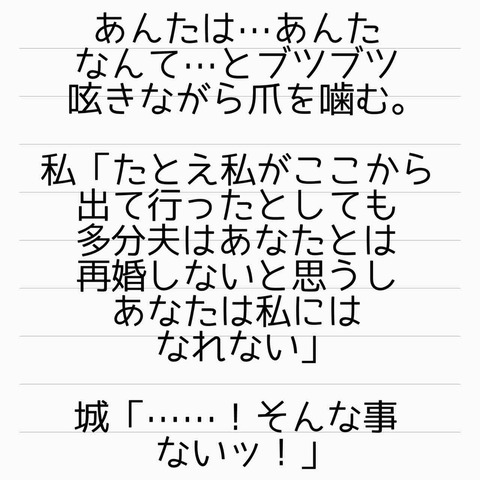 あんたは…あんた
なんて…とブツブツ
呟きながら爪を噛む。
私「たとえ私がここから
出て行ったとしても
多分夫はあなたとは
再婚しないと思うし
あなたは私には
なれない」
城「……！そんな事
ないッ！」